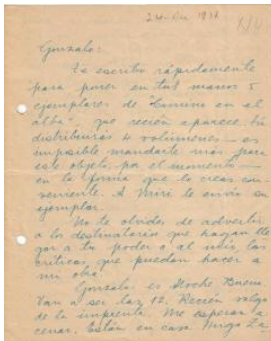 24-Dic 1938
Gonzalo:
Te escribo rápidamente
para poner en tus manos 5
ejemplares de "Camino en el
alba", que recién aparece. Tú
distribuirás 4 volúmenes — es
imposible mandarte más para
este objeto por el momento —
en la forma que lo creas con-
veniente. A Miri le envío un
ejemplar.
No te olvides de advertir
a los destinatarios que hagan lle-
gar a tu poder o al mío, las
críticas que puedan hacer a
mi obra.
Gonzalo: es Noche Buena.
Van a ser las 12. Recién salgo
de la imprenta. Me esperan a
cenar. Están en casa